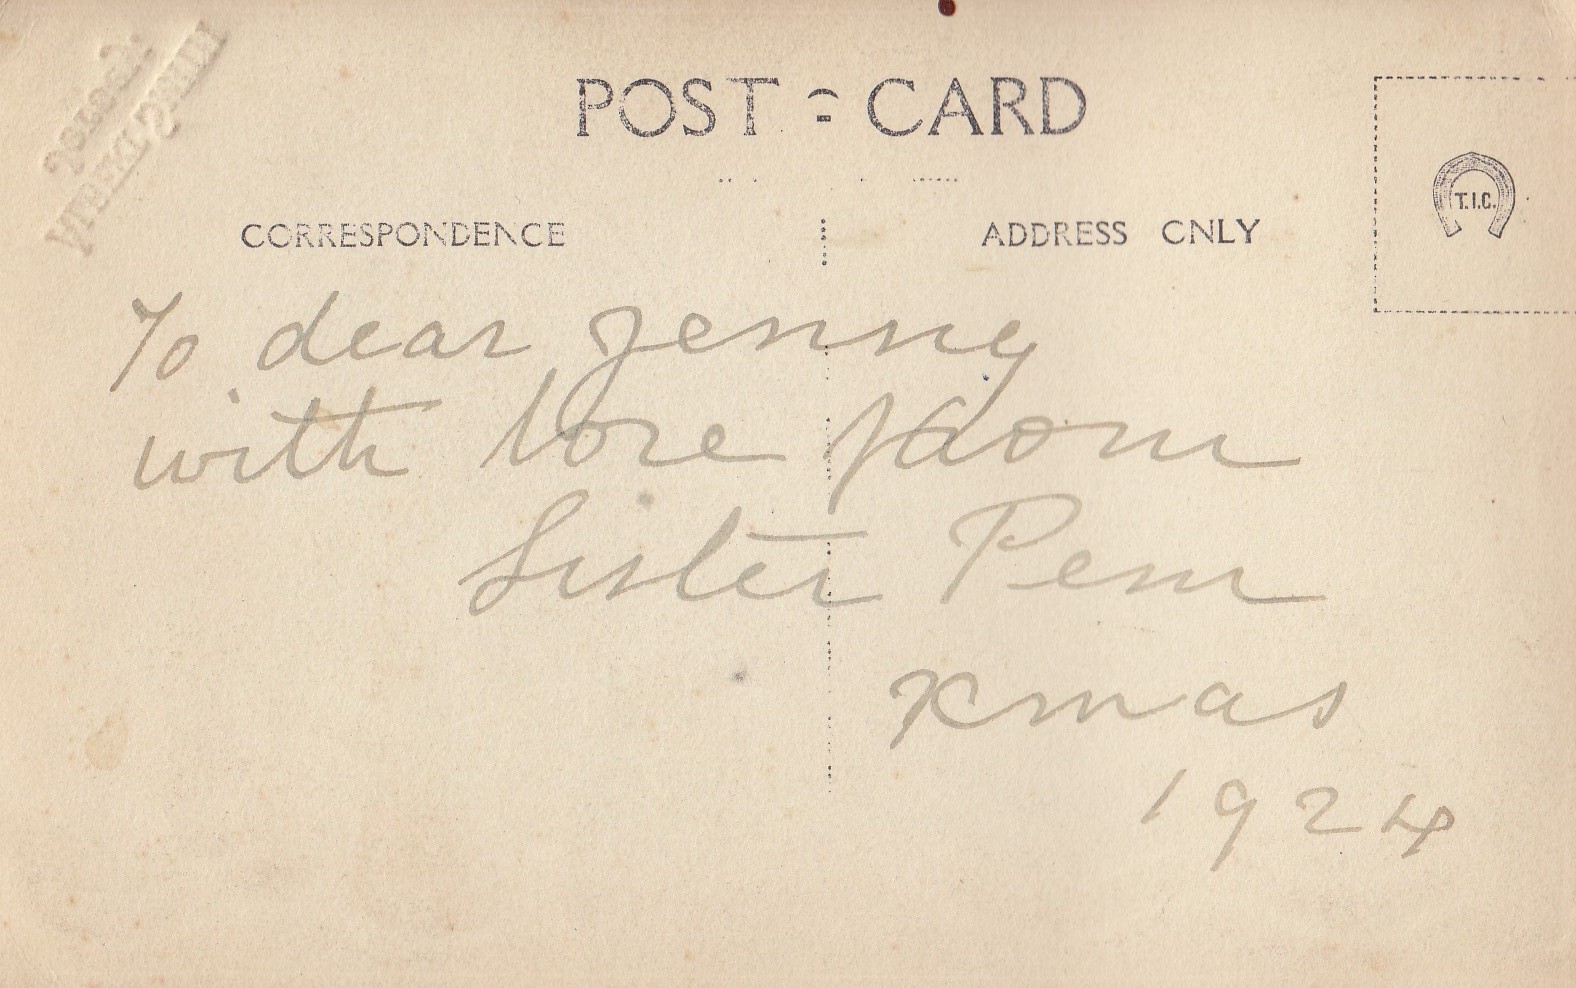 POST CARD
CORRESPONDENCE
ADDRESS ONLY
T.I.C.
To dear Jenny
with love from
Sister Pem
Xmas
1924